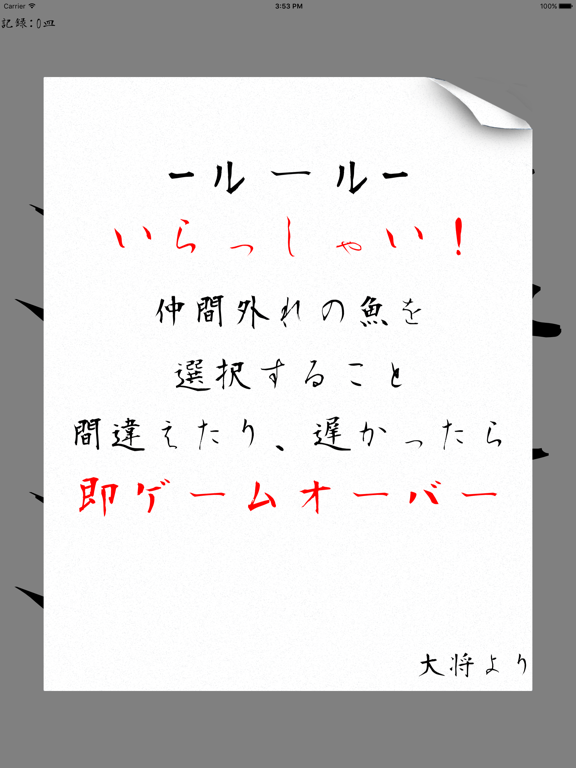 Carrier 3:53 PM 100%
記録:0皿
-ルール-
いらっしゃい!
仲間外れの魚を
選択すること
間違えたり、遅かったら
即ゲームオーバー
大将より